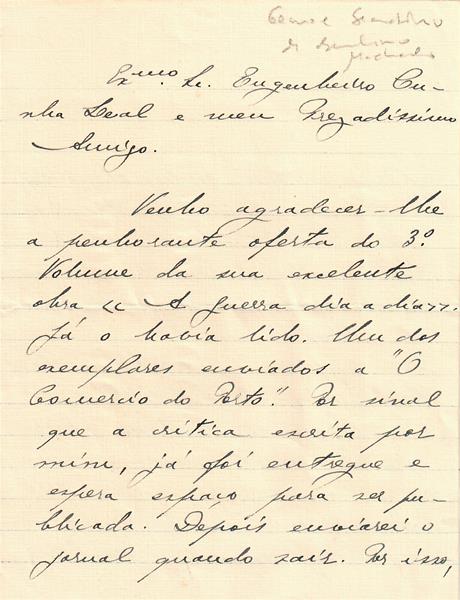 Genro e Secretário
de Bernardino
Machado
Exmo. Sr. Engenheiro Cu-
nha Leal e meu Prezadíssimo
Amigo.
Venho agradecer-lhe
a penhorante oferta do 3º
Volume da sua excelente
obra << A guerra dia a dia>>.
Já o havia lido. Um dos
exemplares enviados a "O
Comercio do Porto". Por sinal
que a critica escrita por
mim, já foi entregue e
espera espaço para ser pu-
blicada. Depois enviarei o
jornal quando sair. Por isso,